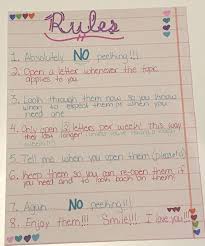 Rules
1. Absolutely NO peeking!!!
2. Open a letter whenever the topic
applies to you.
3. Look through them now so you know
what to expect them or when you
need one.
4. Only open 2 letters per week! This way
they last longer
5. Tell me when you open them (please!)
6. Keep them so you can re-open them if
you need and to look back on them!
7. Again NO peeking!!!
8. Enjoy them!!! Smile!!! I love you!!!